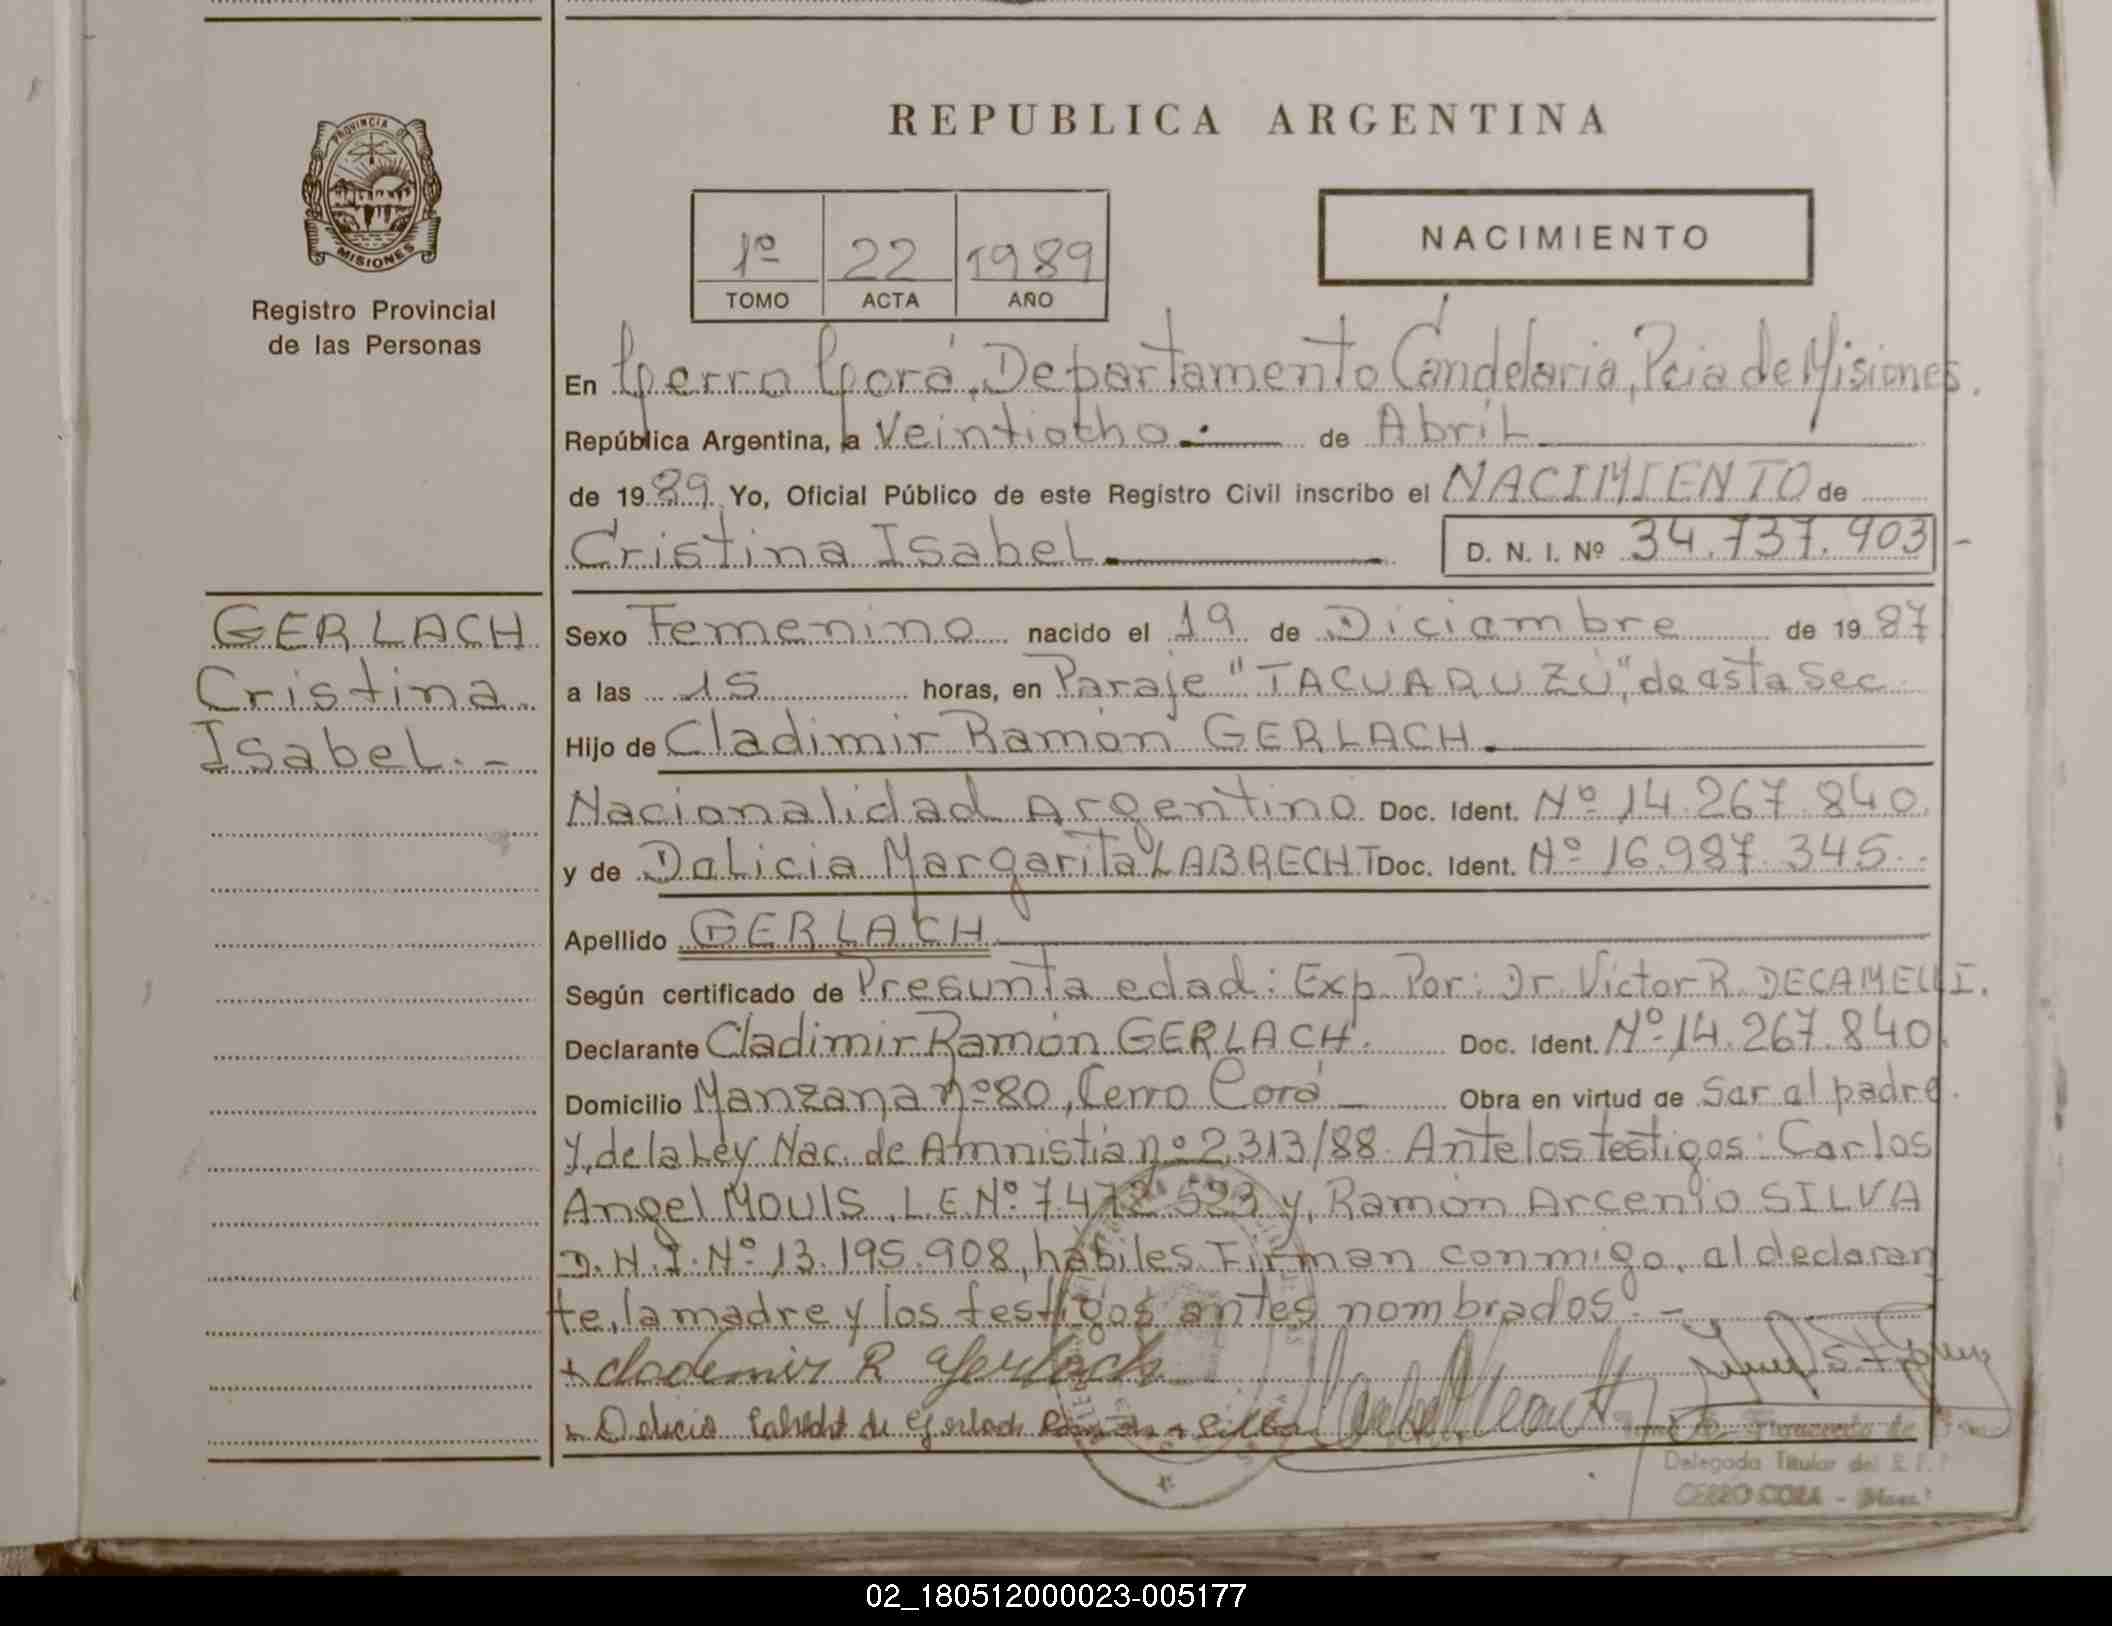 REPUBLICA ARGENTINA
PROVINCIA DE
MISIONES
Registro Provincial
de las Personas
1º 22 1989
TOMO ACTA AÑO
NACIMIENTO
En Cerro Corá, Departamento Candelaria, Pcia de Misiones.
República Argentina, a Veintiocho de Abril
de 1989. Yo, Oficial Público de este Registro Civil inscribo el NACIMIENTO de
Cristina Isabel D. N. I. Nº 34.737.903 -
GERLACH
Cristina
Isabel. -
Sexo Femenino nacido el 19 de Diciembre de 1987
a las 15 horas, en Paraje "TACUARUZÚ", de esta Sec
Hijo de Cladimir Ramón GERLACH.
Nacionalidad Argentino Doc. Ident. Nº 14.267.840.
y de Delicia Margarita LABRECHT Doc. Ident. Nº 16.987.345.
Apellido GERLACH
Según certificado de Presunta edad: Exp. Por: Dr. Victor R. DECAMELLI.
Declarante Cladimir Ramón GERLACH. Doc. Ident. Nº 14.267.840.
Domicilio Manzana nº 80, Cerro Corá Obra en virtud de Ser al padre.
y, de la Ley Nac. de Amnistía nº 2.313/88. Ante los testigos: Carlos
Angel MOULS, L.E. Nº 7.472.523 y, Ramón Arcenio SILVA
D.N.I. Nº 13.195.908, hábiles. Firman conmigo, al declaran
te, la madre y los testigos antes nombrados. -
+ Clademir R Gerlach
+ Delicia Labrecht de Gerlach Silba
Delegada Titular del
CERRO CORA - Mnes
02_180512000023-005177